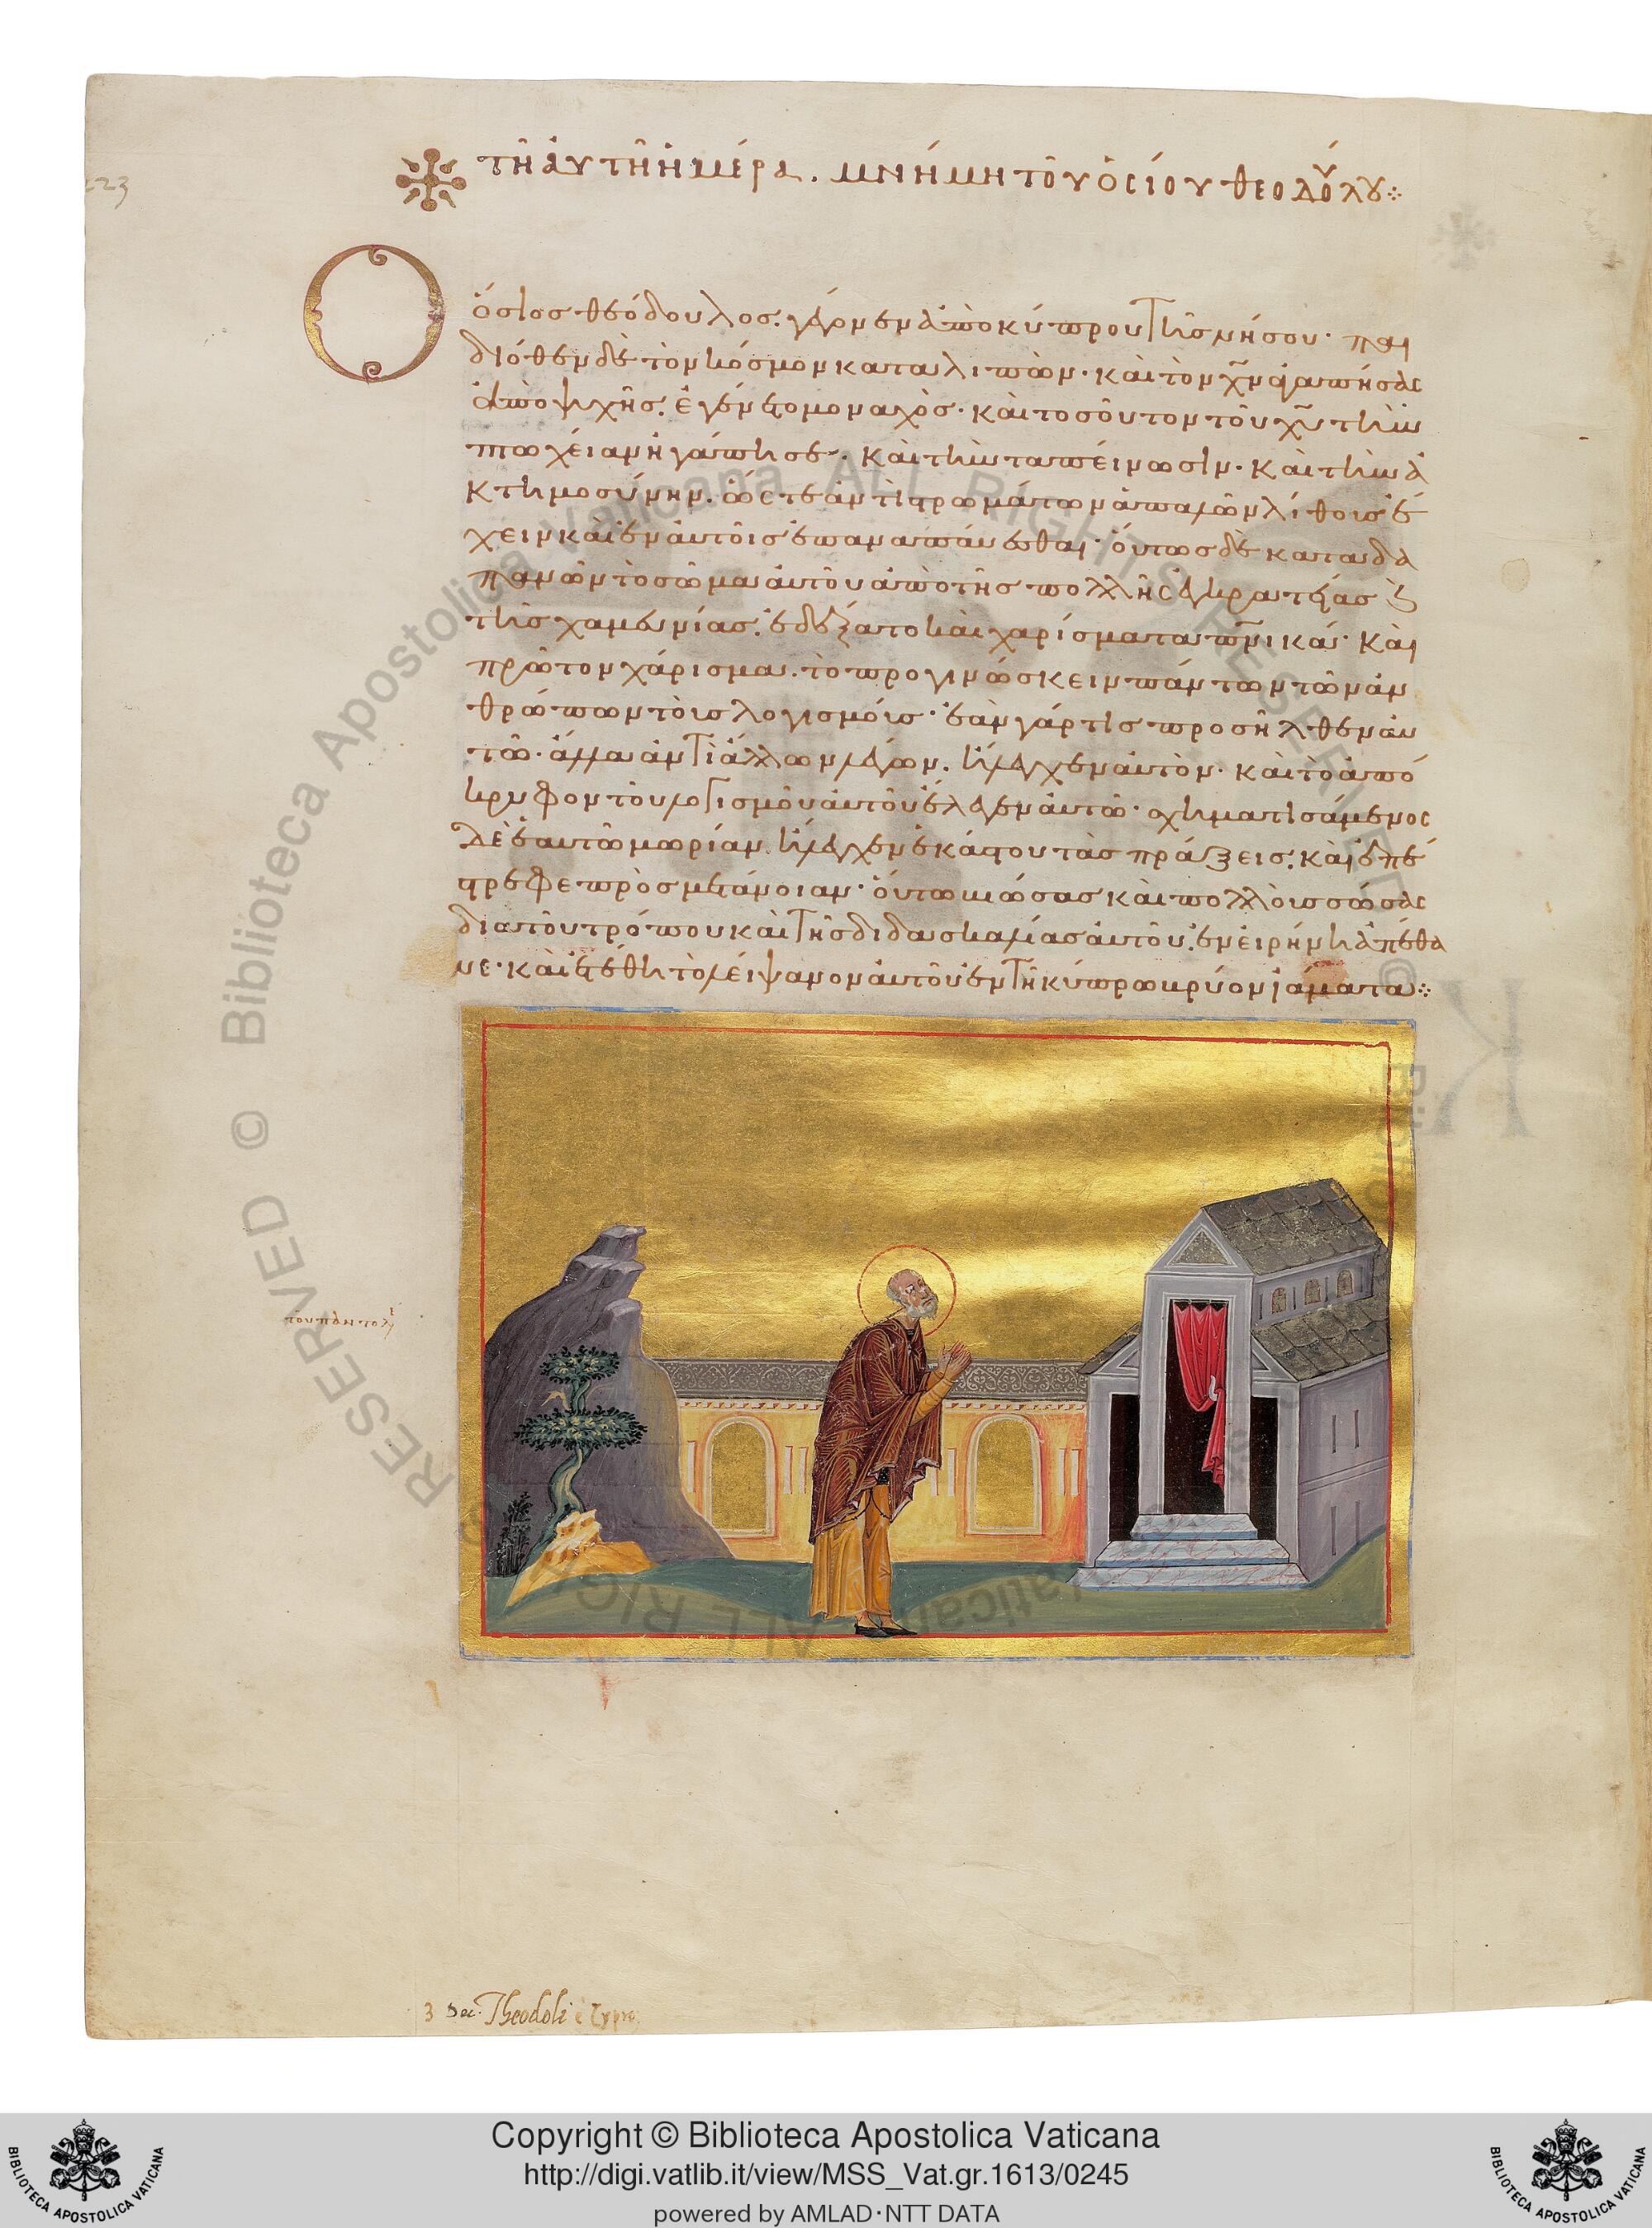 223
τῆ ἀυτῆ ἡμέρα. μνήμη τοῦ ὁσίου θεοδού λου
Ο
ὅσιος θεόδουλος. γέγονεν ἀπὸ κύπρου τῆς νήσου· παι
διόθεν δὲ τὸν κόσμον καταλιπὼν· καὶ τὸν χν ἀγαπήσας
ἀπὸ ψυχῆς. ἐγένετο μοναχὸς· καὶ τοσοῦτον τοῦ χυ τὴν
πτωχείαν ἠγάπησε· καὶ τὴν ταπείνωσιν· καὶ τὴν ἀ
κτημοσύνην. ὥστε ἀντὶ στρωμάτων ἁπαλῶν λίθοις ἔ
χειν καὶ ἐν ἀυτοῖς ἐπαναπάυεσθαι· ὅυτως δὲ καταδα
πανῶν τὸ σῶμα ἀυτοῦ ἀπὸ τῆς πολλῆς ἐγκρατείας ϗ
τῆς χαμευνίας. ἐδέξατο καὶ χαρίσματα πνικά· Καὶ
πρῶτον χάρισμα. τὸ προγινώσκειν πάντων τῶν ἀν
θρώπων τοῖς λογισμόις· ἐὰν γάρ τις προσῆλθεν ἀυ
τῶ· ἄλλα ἀντὶ ἄλλων λέγων. ἤλεγχεν ἀυτὸν· καὶ τὸ ἀπό
κρυφον τοῦ λογισμοῦ ἀυτοῦ ἔλεγεν ἀυτῶ· σχηματισάμενος
δὲ ἑαυτῶ μωρίαν. ἤλεγχεν ἑκάστου τὰς πράξεις. καὶ ἐπέ
στρεφε πρὸς μετάνοιαν· ὅυτω βιώσας καὶ πολλὸυς σώσας
διὰ τοῦ τρόπου καὶ τῆς διδασκαλίας ἀυτοῦ. ἐν εἰρήνη ἀπέθα
νε· καὶ ἐτέθη τὸ λείψανον ἀυτοῦ ἐν τῆ κύπρω βρύον ἰάματα
3 Dec. Theodoli è Cypro
© Biblioteca Apostolica Vaticana ALL RIGHTS RESERVED
Copyright © Biblioteca Apostolica Vaticana
http://digi.vatlib.it/view/MSS_Vat.gr.1613/0245
powered by AMLAD·NTT DATA
BIBLIOTECA APOSTOLICA VATICANA
BIBLIOTECA APOSTOLICA VATICANA